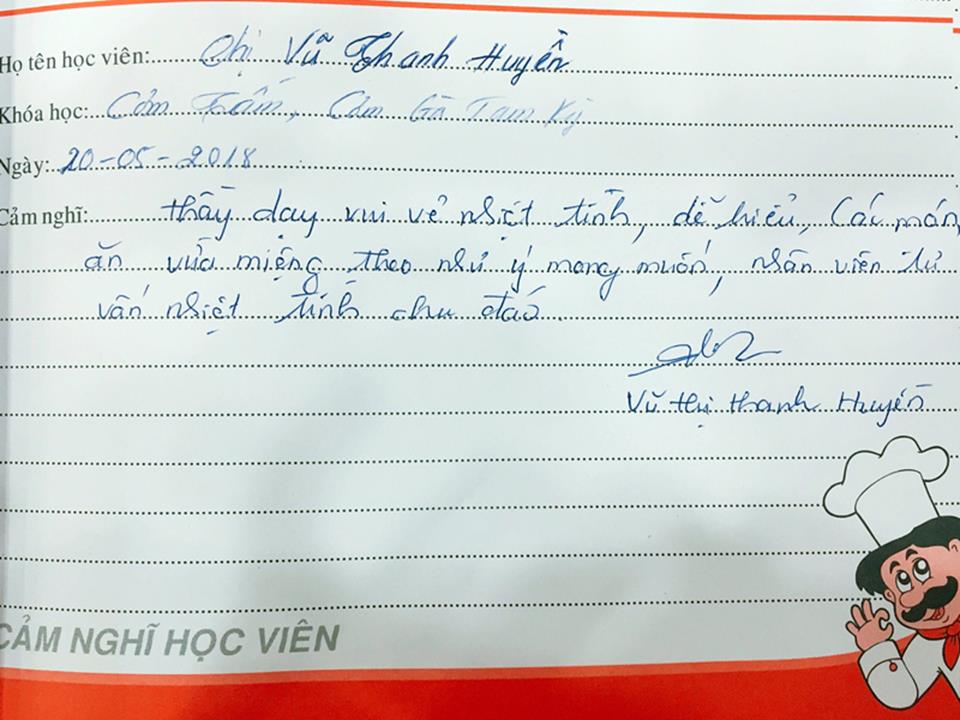 Họ tên học viên: Chị Vũ Thanh Huyền
Khóa học: Cơm Tấm, Cơm Gà Tam Kỳ
Ngày: 20-05-2018
Cảm nghĩ: thầy dạy vui vẻ nhiệt tình, dễ hiểu, Các món
ăn vừa miệng theo như ý mong muốn, nhân viên tư
vấn nhiệt tình chu đáo.
Vũ thị thanh Huyền
CẢM NGHĨ HỌC VIÊN